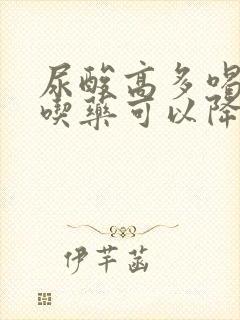 尿酸高多喝
喫藥可以降
伊芊菡